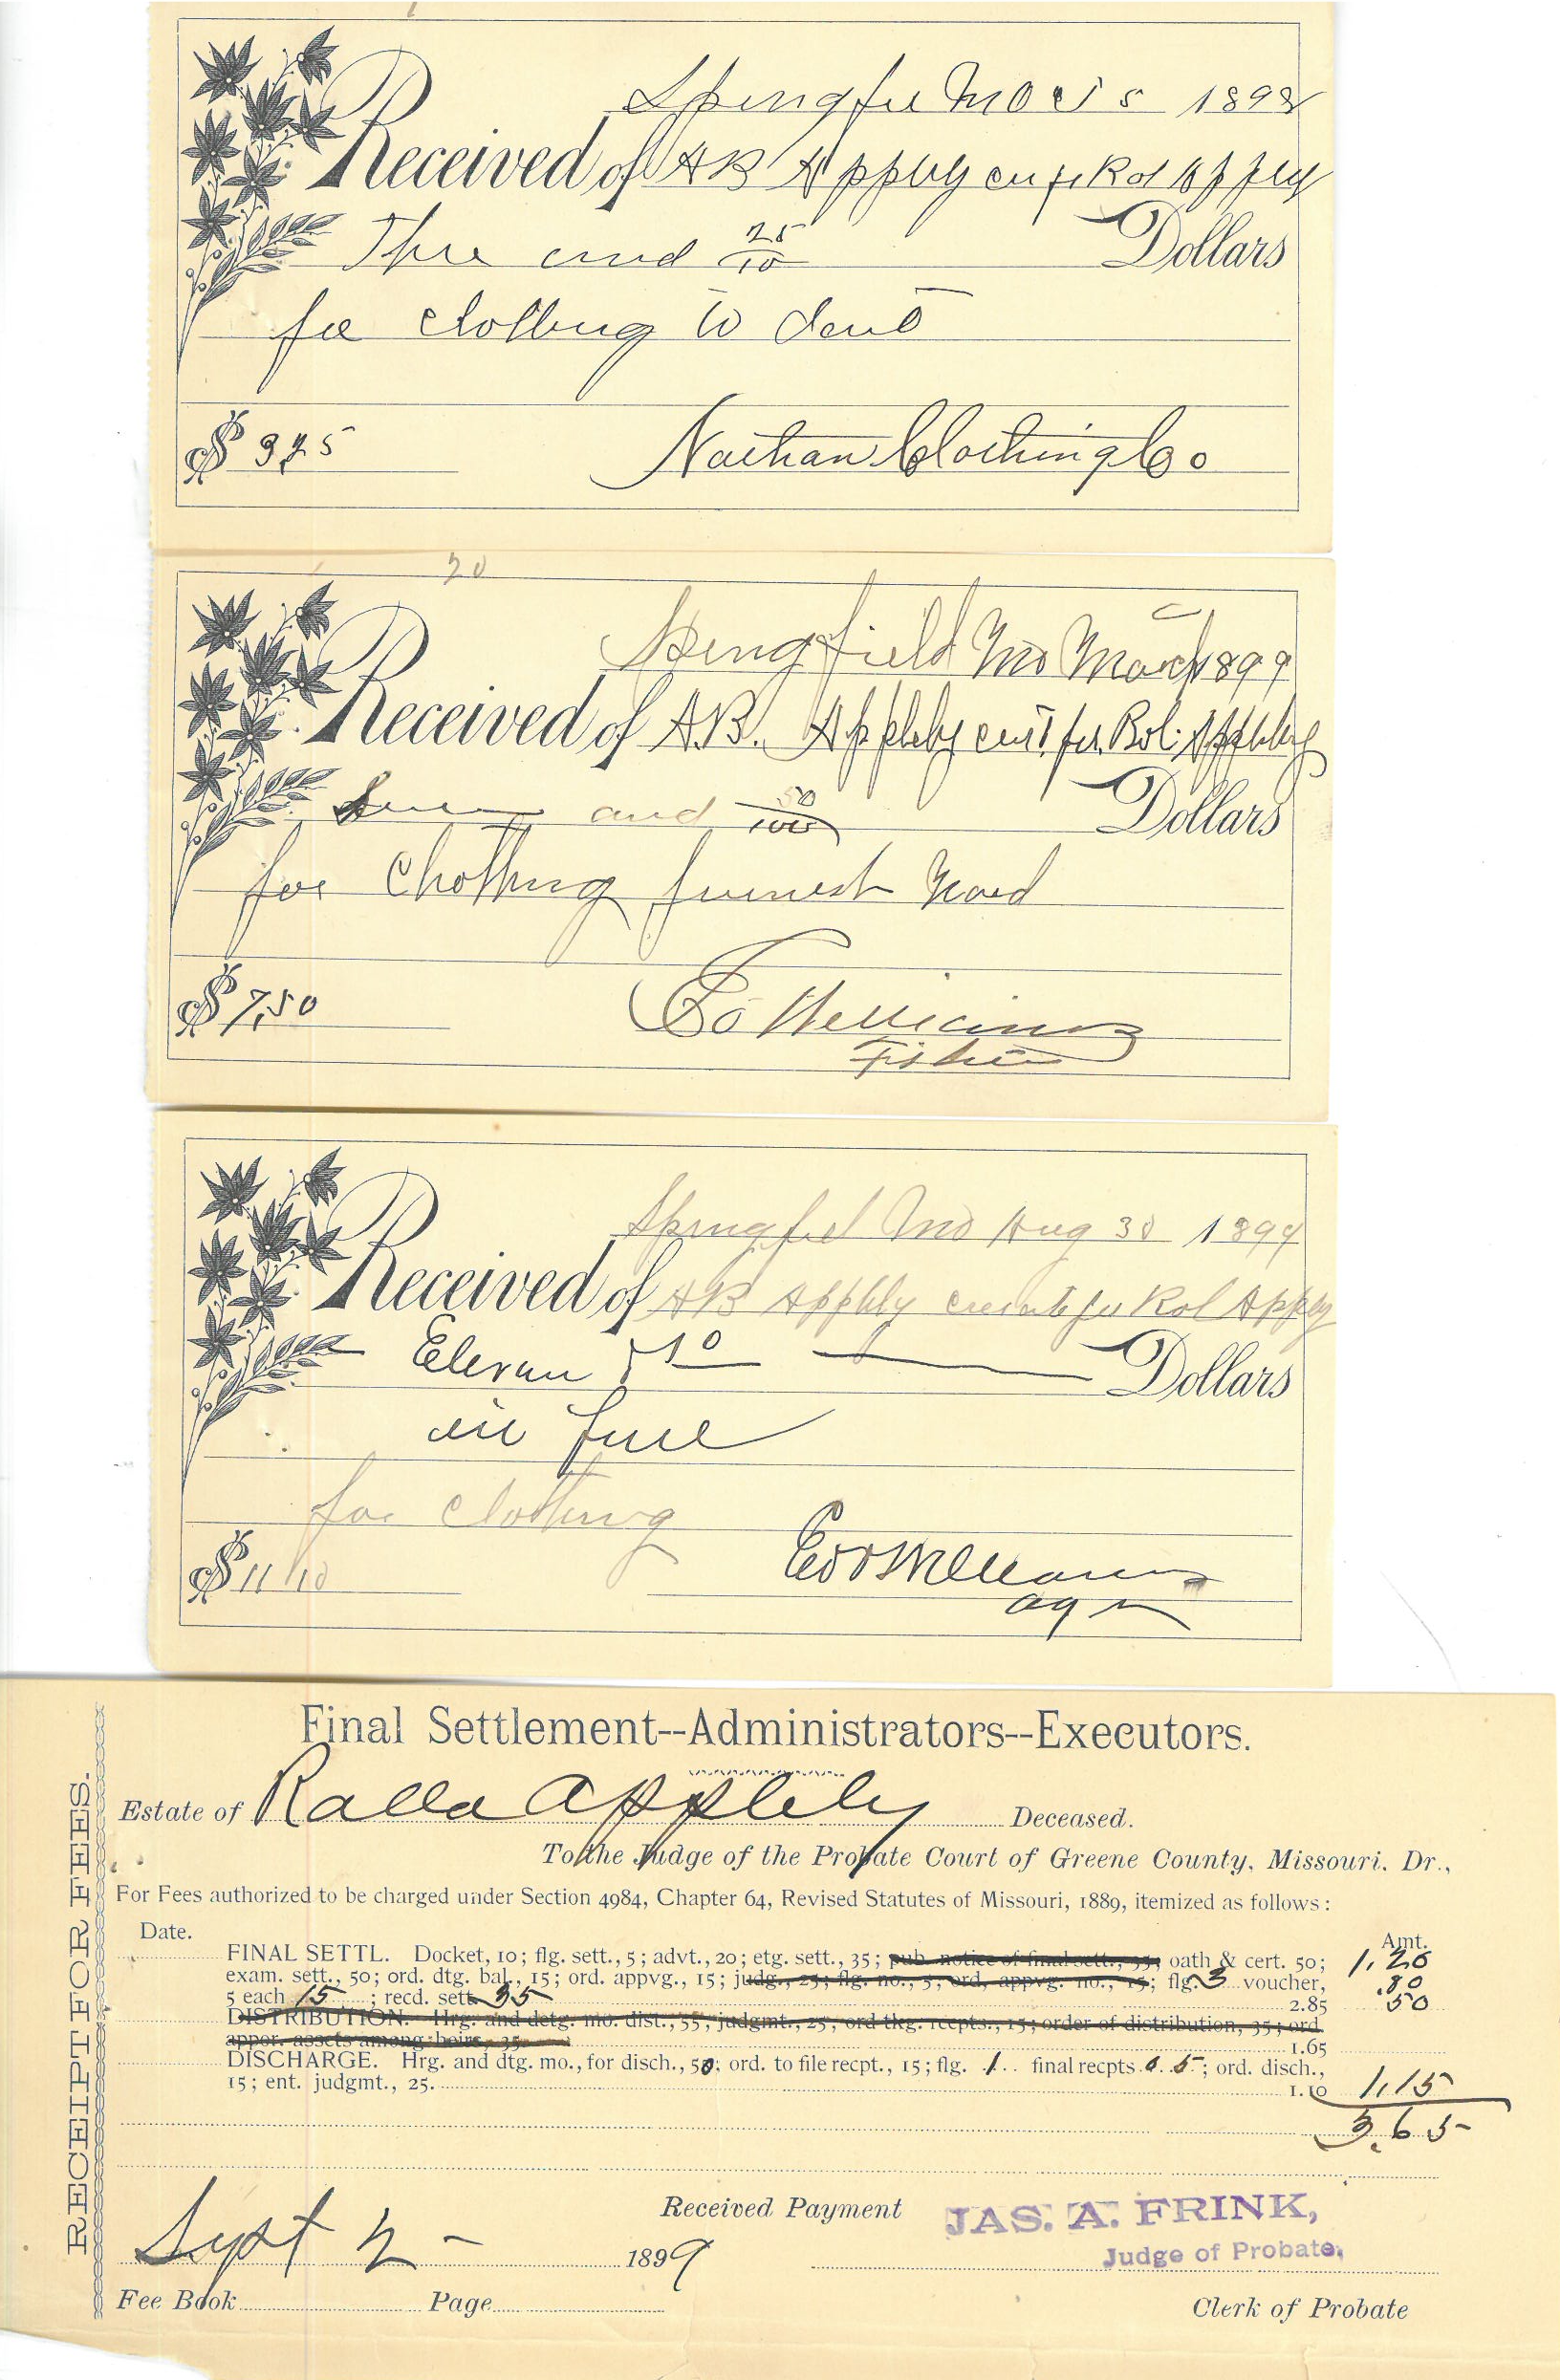 Springfie Mo 5 1898
Received of AB Appleby cu for Rol Appley
Thre and 25/10 Dollars
for Clothing to
$ 3,25 Nathan Clothing Co
20
Springfield Mo March 1899
Received of A.B. Appleby curt. for Rol. Appleby
and 50/100 Dollars
for Clothing furnish Ward
$ 7,50 Ed Williams
Springfiel Mo Aug 30 1899
Received of AB Appleby for Rol Appleby
Eleven 10 Dollars
in full
for Clothing
$ 11 10 Ed Williams
agn
RECEIPT FOR FEES.
Final Settlement--Administrators--Executors.
Estate of Ralla Appleby Deceased.
To the Judge of the Probate Court of Greene County, Missouri. Dr.,
For Fees authorized to be charged under Section 4984, Chapter 64, Revised Statutes of Missouri, 1889, itemized as follows:
Date. Amt.
FINAL SETTL. Docket, 10; flg. sett., 5; advt., 20; etg. sett., 35; pub. notice of final sett., 35; oath & cert. 50; 1.20
exam. sett., 50; ord. dtg. bal., 15; ord. appvg., 15; judg., 25; flg. no., 5; ord. appvg. no., 15; flg. 3 voucher, .80
5 each 15; recd. sett. 35 2.85 50
DISTRIBUTION. Hrg. and detg. mo. dist., 55; judgmt., 25; ord tkg. rcepts., 15; order of distribution, 35; ord
appor. assets among heirs, 35 1.65
DISCHARGE. Hrg. and dtg. mo., for disch., 50; ord. to file recpt., 15; flg. 1 final recpts 5; ord. disch.,
15; ent. judgmt., 25. 1.10 1.15
3.65
Received Payment JAS. A. FRINK,
Sept 2 - 1899 Judge of Probate.
Fee Book Page Clerk of Probate